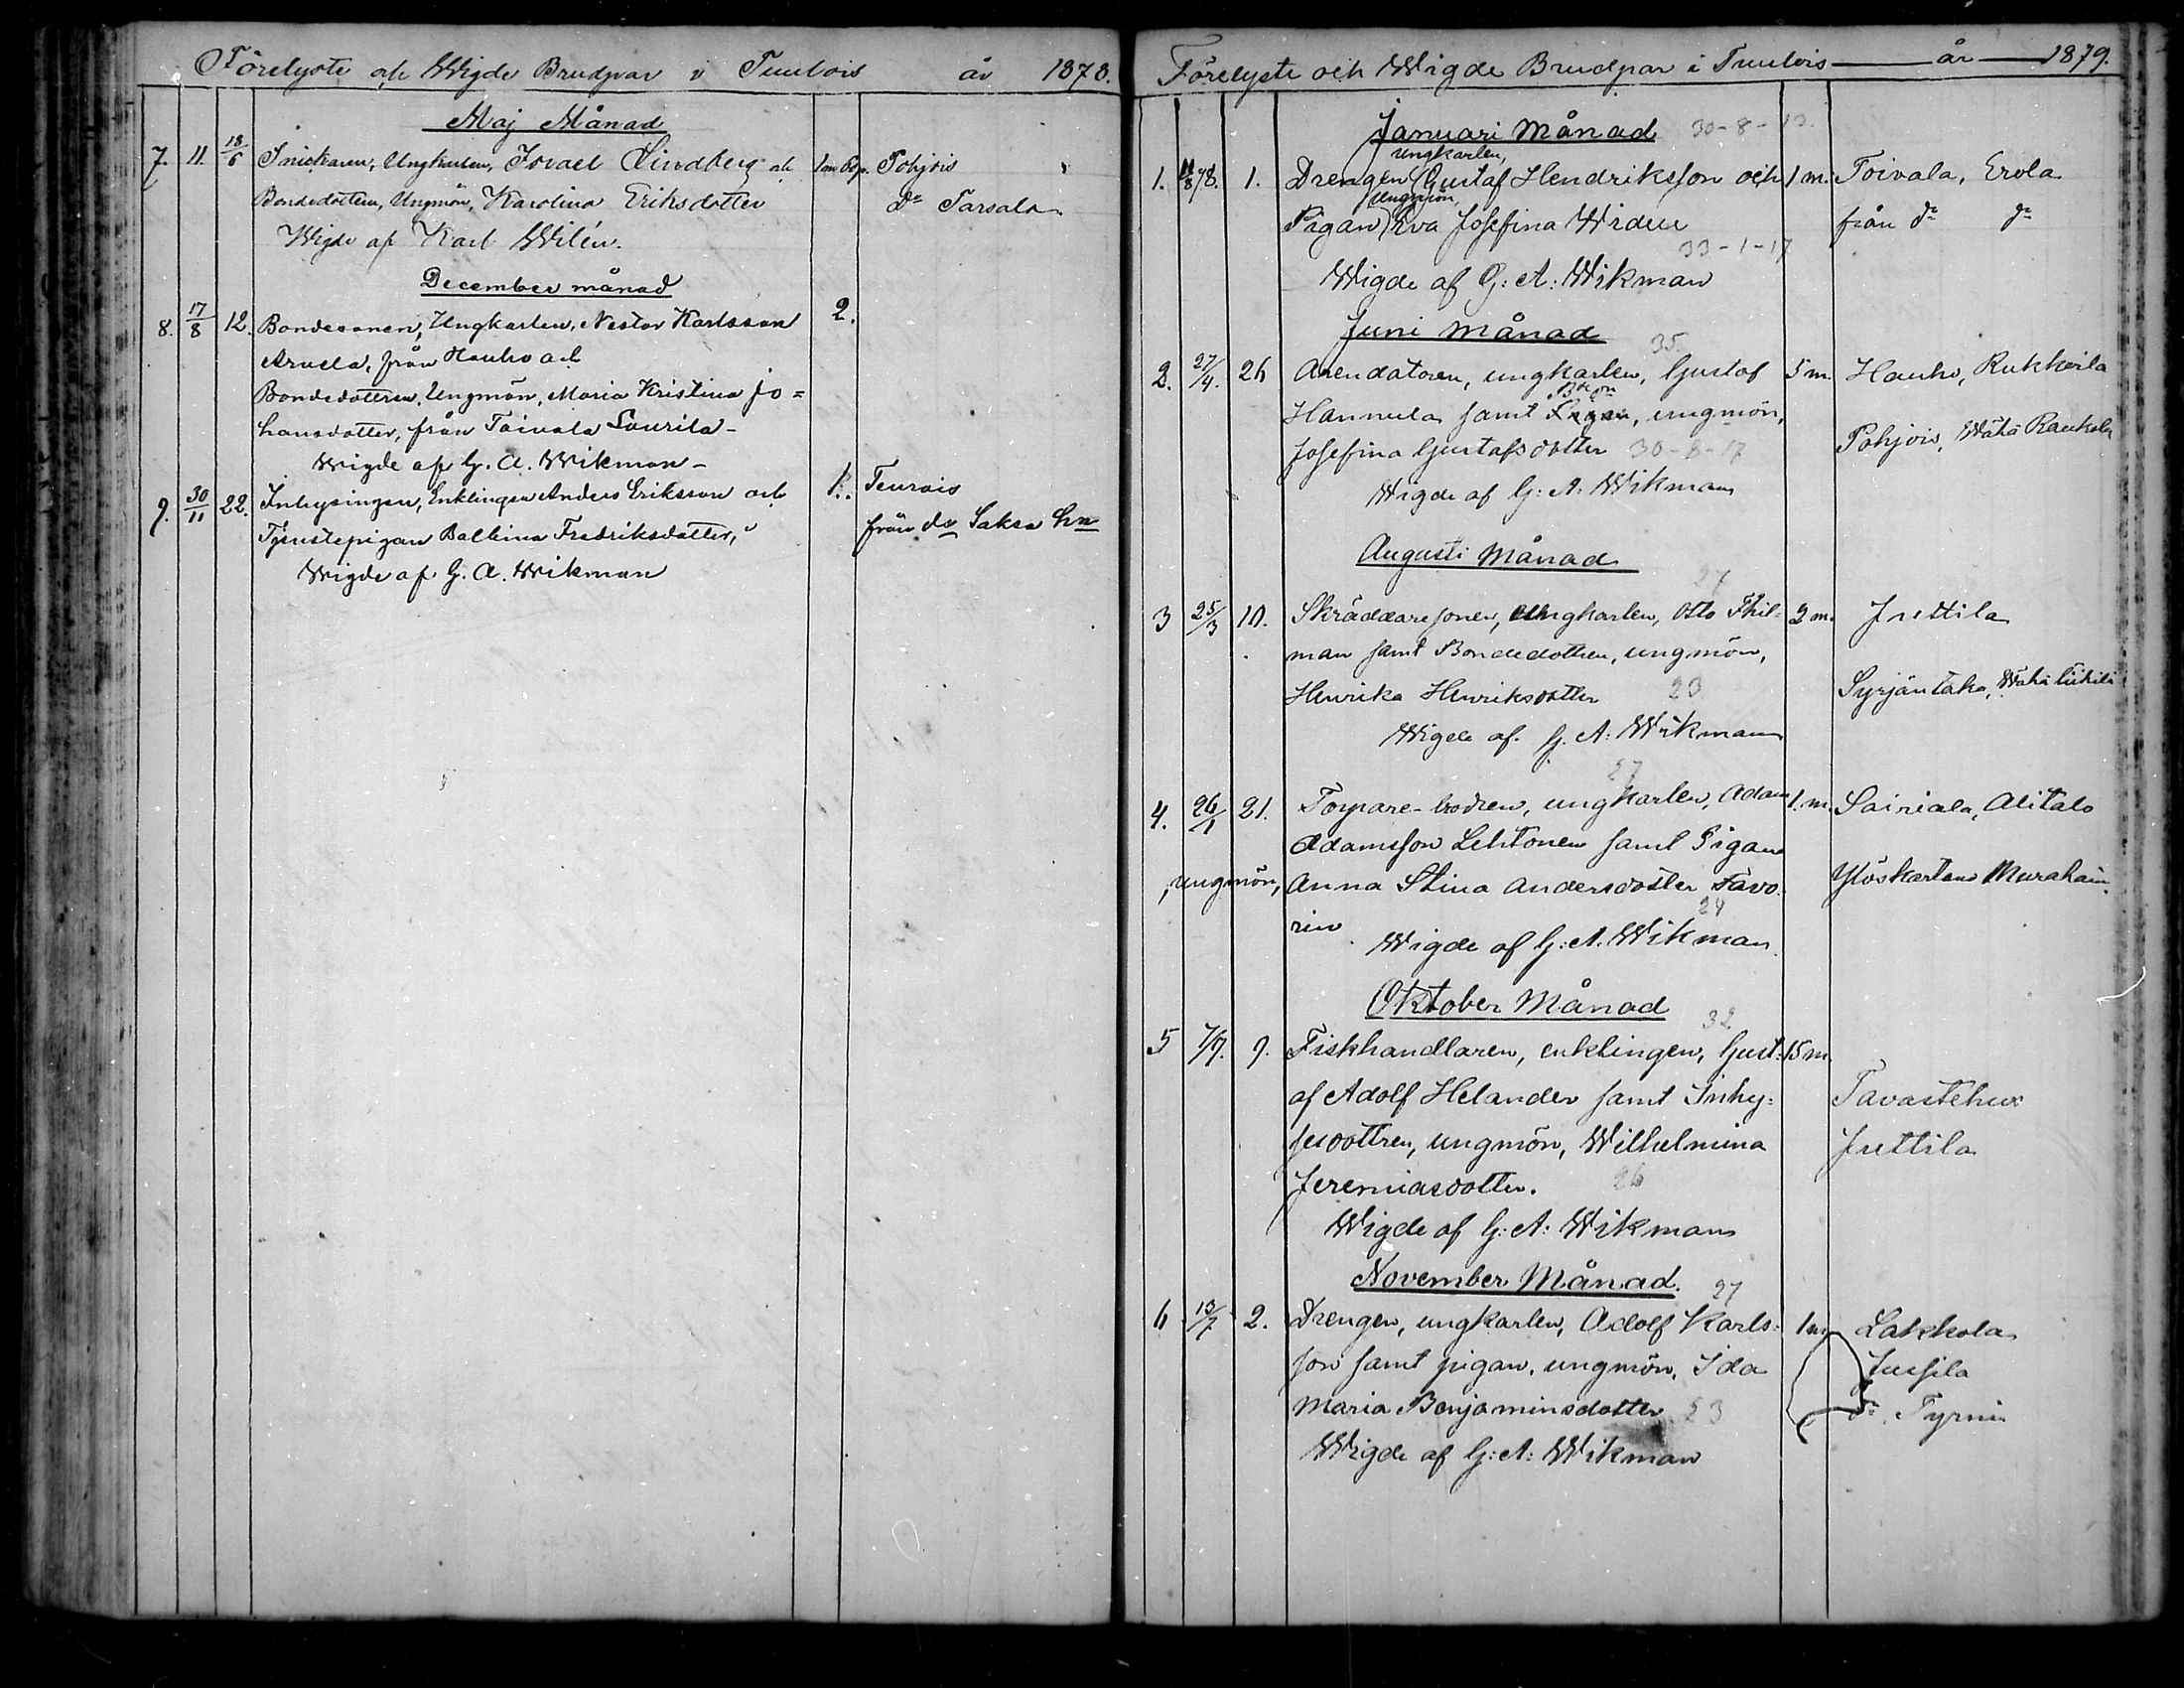 Förelyste och Wigde Brudpar i Tuulois år 1878.
Maj Månad
7. 11. 18/6 Snickaren, Ungkarlen, Israel Lindberg och 1 m 60 p. Pohjois
Bondedottern, Ungmön, Karolina Eriksdotter Do Parsala
Wigde af Karl Wilén.
December månad
8. 17/8 12. Bondesonen, Ungkarlen, Nestor Karlsson 2.
från Hauho och
Bondedottren, Ungmön, Maria Kristina Jo=
hansdotter, från Toivala Laurila-
Wigde af G. A. Wikman-
9. 30/11 22. Inhysingen, Enklingen Anders Eriksson och 1. Teurois
Tjenstepigan Balbina Fredriksdotter, från do Saksa
Wigde af G. A. Wikman
Förelyste och Wigde Brudpar i Tuulois år 1879.
Januari Månad 30-8-13.
ungkarlen,
1. 11/8 78. 1. Drengen Gustaf Hendriksson och 1 m. Toivala, Erola
ungmön,
Pigan Eva Josefina Widen från do do
33-1-17
Wigde af G: A: Wikman
Juni Månad
35.
2. 27/4. 26 Arendatoren, ungkarlen, Gustaf 5 m. Hauho, Rukkoila
Hannula samt ungmön,
Josefina Gustafsdotter 30-8-17 Pohjois, Wähä Raukola
Wigde af G: A: Wikman
Augusti Månad
27
3 25/3 10. Skräddaresonen, Ungkarlen, Otto Thil= 2 m. Juttila
man samt Bondedottren, ungmön,
Henrika Henriksdotter 23 Syrjäntaka, Wähä Liikilä
Wigde af G. A: Wikman
27
4. 26/1 21. Torpare-brodren, ungkarlen, Adam 1. m. Sairiala, Alitalo
Adamsson Lehtonen samt Pigan
, ungmön, Anna Stina Andersdotter Favo- Ylöskartano Muraham.
24
rin
Wigde af G: A: Wikman
Oktober Månad
32
5 7/7. 9. Fiskhandlaren, enklingen, Gust- 15 m.
af Adolf Helander samt Inhy= Tavastehus
sesdottren, ungmön, Wilhelmina Juttila
Jeremiasdotter. 26
Wigde af G: A: Wikman
November Månad.
27
6 13/7 2. Drengen, ungkarlen, Adolf Karls- 1 m Lakkola
son samt pigan, ungmön, Ida Jussila
Maria Benjaminsdotter 23 do Tyrni
Wigde af G: A: Wikman